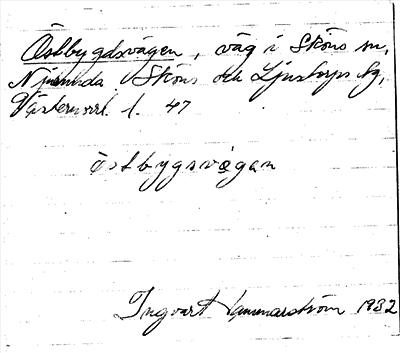 Östbygdsvägen, väg i Sköns sn,
Njurunda, Sköns och Ljustorps tg,
Västernorrl. l. 47
östbygsvägan
Ingvart Hammarström 1932